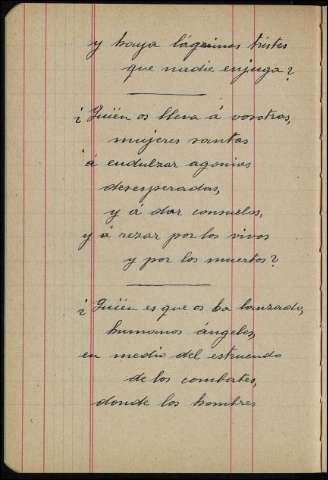 y haya lágrimas tristes
que nadie enjuga?
¿Quién os lleva á vosotras,
mujeres santas
á endulzar agonias
desesperadas,
y á dar consuelos,
y á rezar por los vivos
y por los muertos?
¿Quién es que os ha lanzado,
humanos ángeles,
en medio del estruendo
de los combates,
donde los hombres